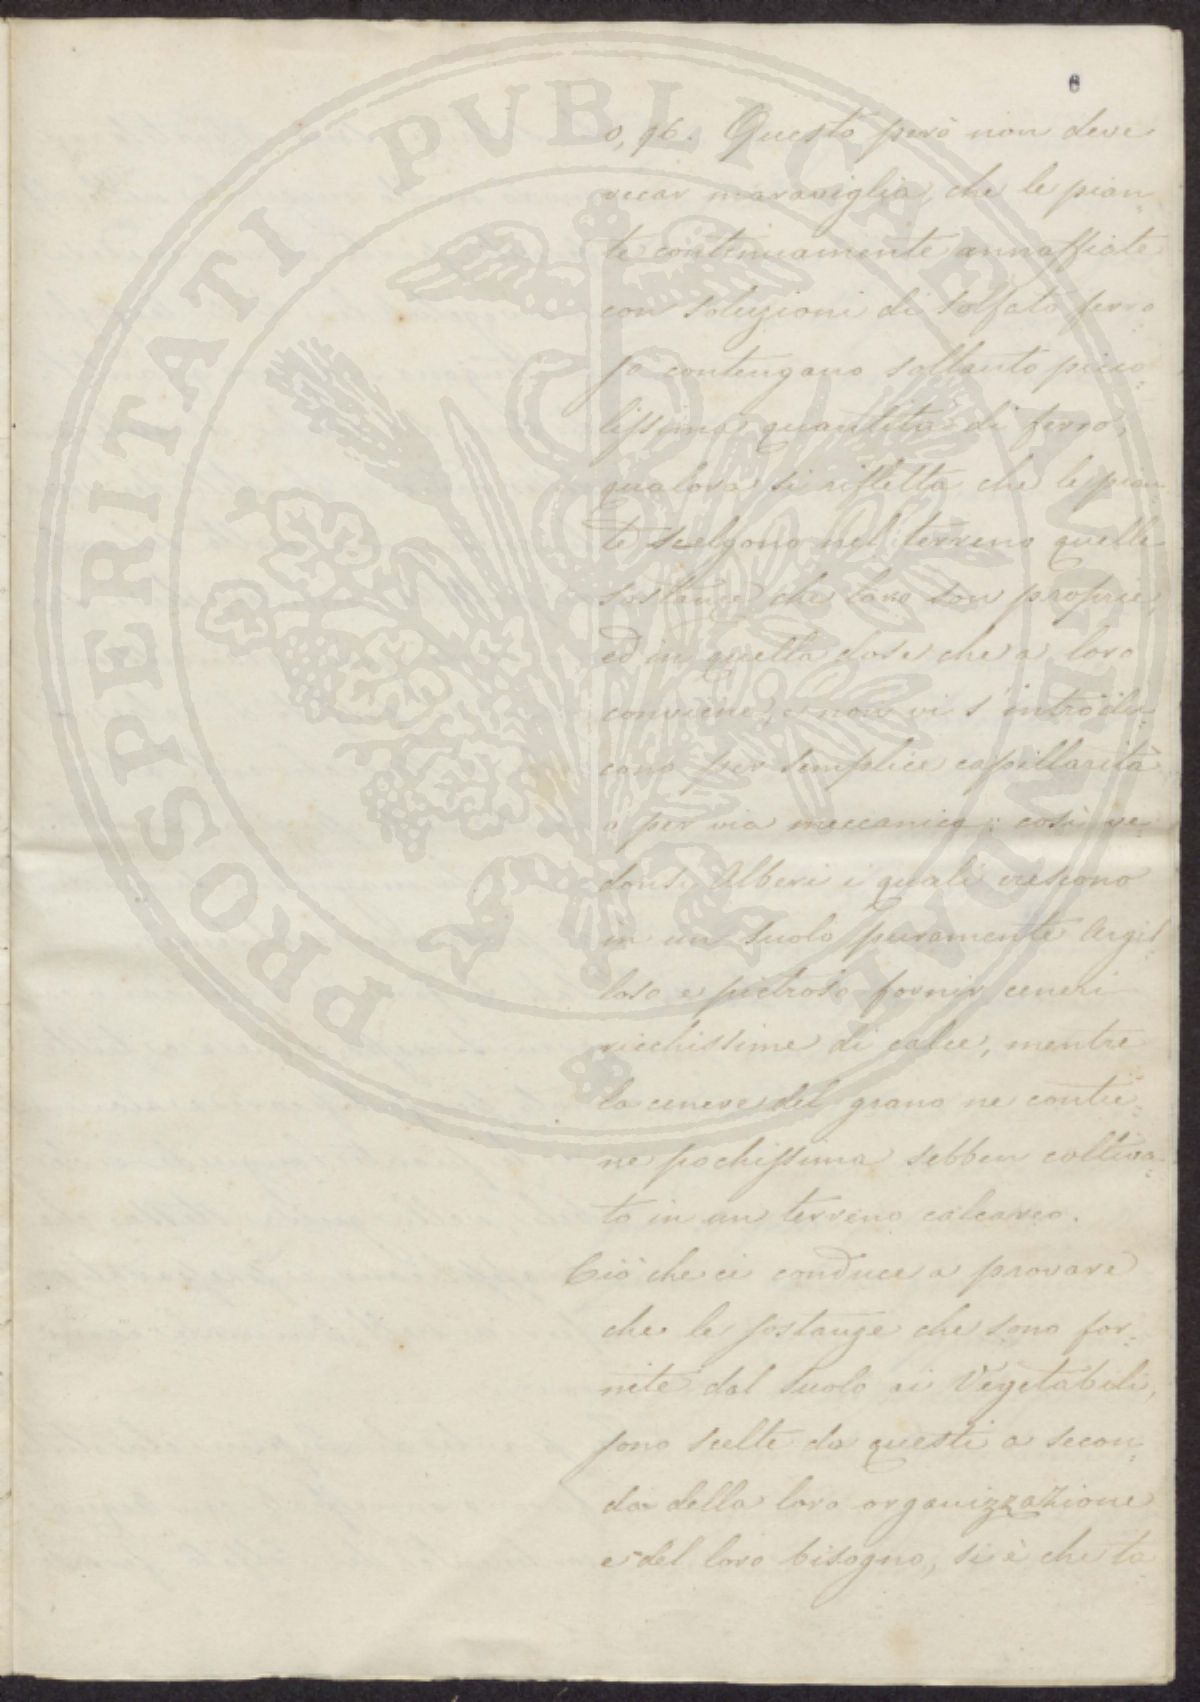 6
0,96. Questo però non deve
recar maraviglia, che le pian=
te continuamente annaffiate
con soluzioni di solfato ferro
so contengano soltanto picco=
lissima quantità di ferro,
qualora si rifletta che le pian=
te scelgono nel terreno quelle
sostanze che loro son proprie,
ed in quella dose che a loro
conviene, e non vi s'introdu=
cono per semplice capillarità
o per via meccanica: così ve=
donsi Alberi i quali crescono
in un suolo puramente Argil=
loso e pietroso fornir ceneri
ricchissime di calce, mentre
la cenere del grano ne contie=
ne pochissima sebben coltiva=
to in un terreno calcareo.
Ciò che ci conduce a provare
che le sostanze che sono for=
nite dal suolo ai Vegetabili,
sono scelte da questi a secon=
da della loro organizzazione
e del loro bisogno, si è che ta
PROSPERITATI PUBLICAE AUGENDAE